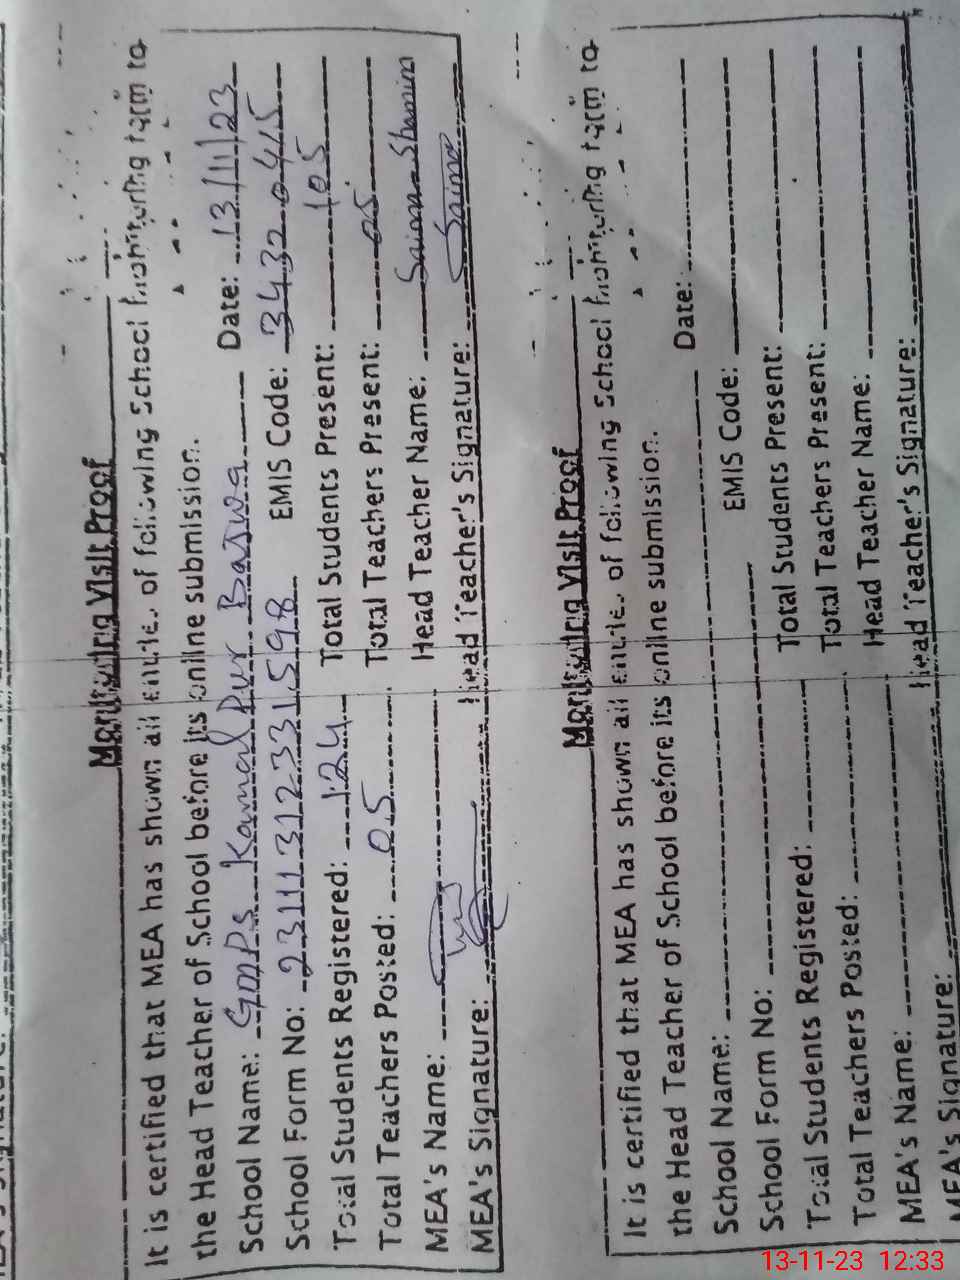 Monitoring Visit Proof
It is certified that MEA has shown all entries of following School Monitoring form to
the Head Teacher of School before its online submission.
School Name: GMPS Kamal Pur Bajwa Date: 13/11/23
School Form No: 23111312331598 EMIS Code: 34320415
Total Students Registered: 124 Total Students Present: 105
Total Teachers Posted: 05 Total Teachers Present: 05
MEA's Name: Head Teacher Name: Saima Shamim
MEA's Signature: Head Teacher's Signature: Saima
Monitoring Visit Proof
It is certified that MEA has shown all entries of following School Monitoring form to
the Head Teacher of School before its online submission.
School Name: Date:
School Form No: EMIS Code:
Total Students Registered: Total Students Present:
Total Teachers Posted: Total Teachers Present:
MEA's Name: Head Teacher Name:
MEA's Signature: Head Teacher's Signature:
13-11-23 12:33